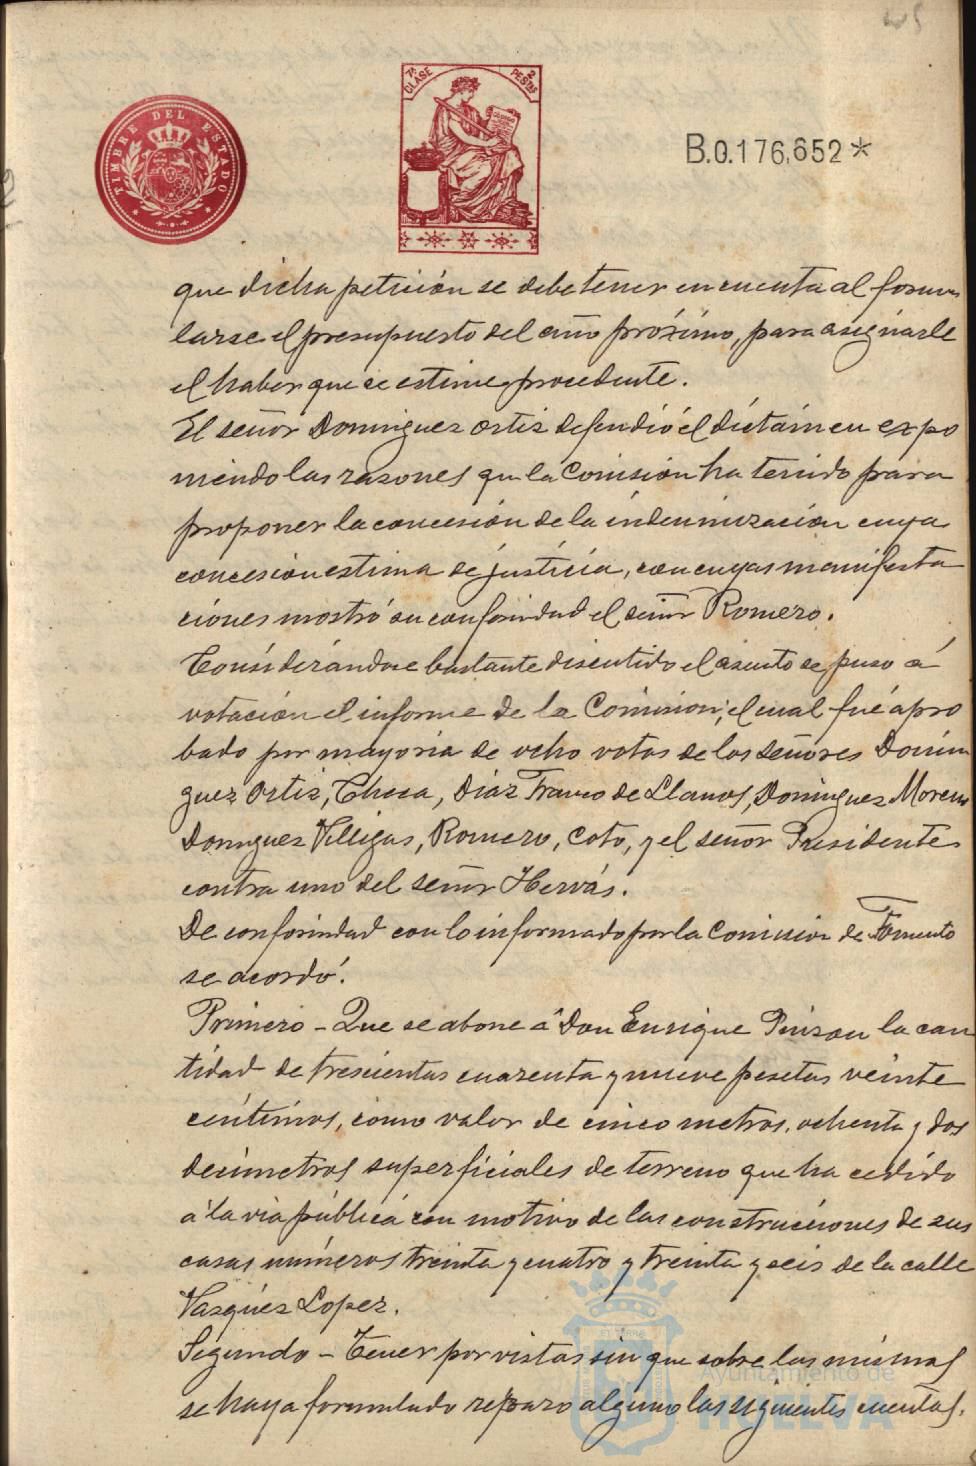 45
TIMBRE DEL ESTADO
7ª CLASE
2 PESTAS
B.0.176,652*
que dicha petición se debe tener en cuenta al formu
larse el presupuesto del año próximo, para asignarle
el haber que se estime procedente.
El señor Dominguez Ortiz defendió el dictámen expo
niendo las razones que la Comisión ha tenido para
proponer la concesión de la indemnización cuya
concesión estima de justicia, con cuyas manifesta
ciones mostró su conformidad el señor Romero.
Considerándose bastante discutido el asunto se puso á
votación el informe de la Comisión, el cual fué apro
bado por mayoria de ocho votos de los señores Domin
guez Ortiz, Checa, Díaz Franco de Llanos, Dominguez Moreno
Dominguez Villegas, Romero, Coto, y el señor Presidente
contra uno del señor Hervás.
De conformidad con lo informado por la Comision de Fomento
se acordó:
Primero - Que se abone á Don Enrique Pinzon la can
tidad de trescientas cuarenta y nueve pesetas veinte
céntimos, como valor de cinco metros, ochenta y dos
decimetros superficiales de terreno que ha cedido
á la via pública con motivo de las construcciones de sus
casas números treinta y cuatro y treinta y seis de la calle
Vazquez Lopez.
Segundo - Tener por vistas sin que sobre las mismas
se haya formulado reparo alguno las siguientes cuentas.
Ayuntamiento de
HUELVA